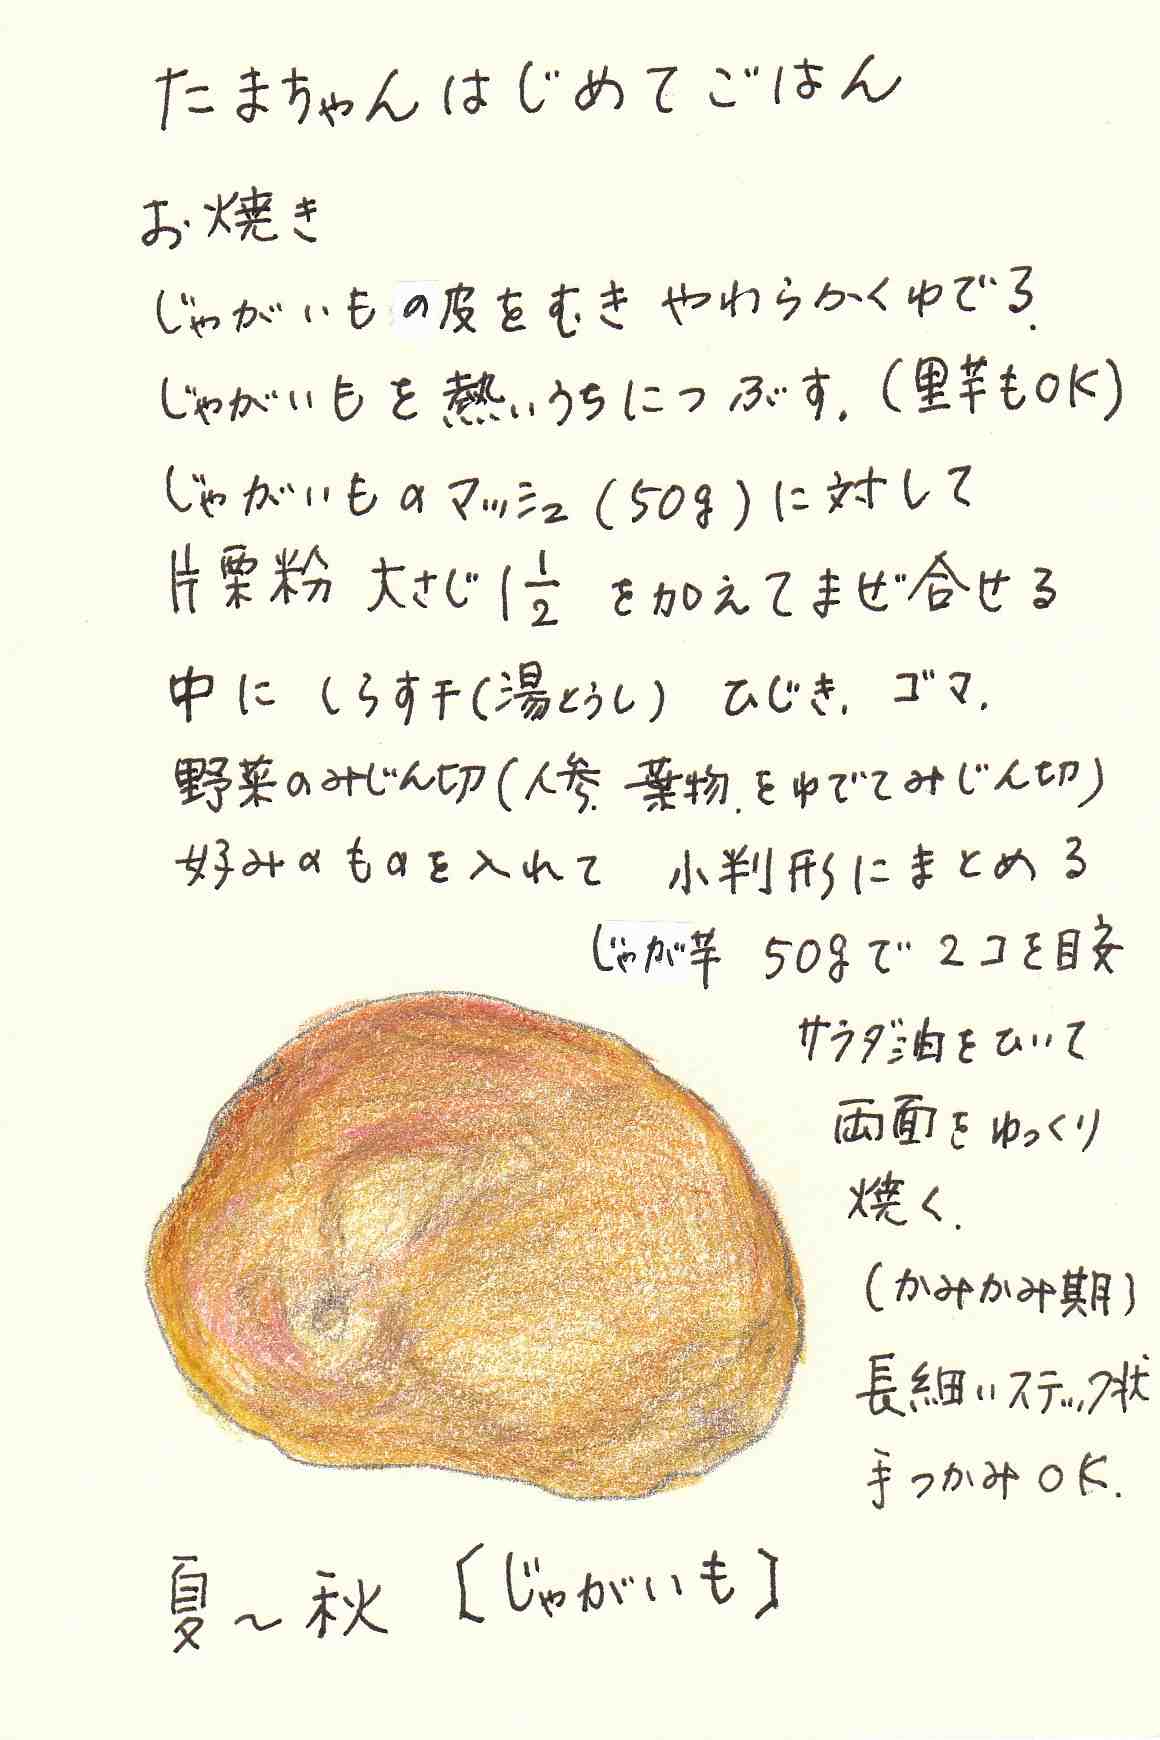 たまちゃんはじめてごはん
お焼き
じゃがいもの皮をむき やわらかくゆでる.
じゃがいもを熱いうちにつぶす.(里芋もOK)
じゃがいものマッシュ(50g)に対して
片栗粉 大さじ1 1/2 を加えてまぜ合せる
中に しらす干(湯とうし) ひじき. ゴマ.
野菜のみじん切(人参. 葉物.をゆでてみじん切)
好みのものを入れて 小判形にまとめる
じゃが芋 50gで 2コを目安
サラダ油をひいて
両面をゆっくり
焼く.
(かみかみ期)
長細いスティック状
手つかみOK.
夏〜秋 [じゃがいも]